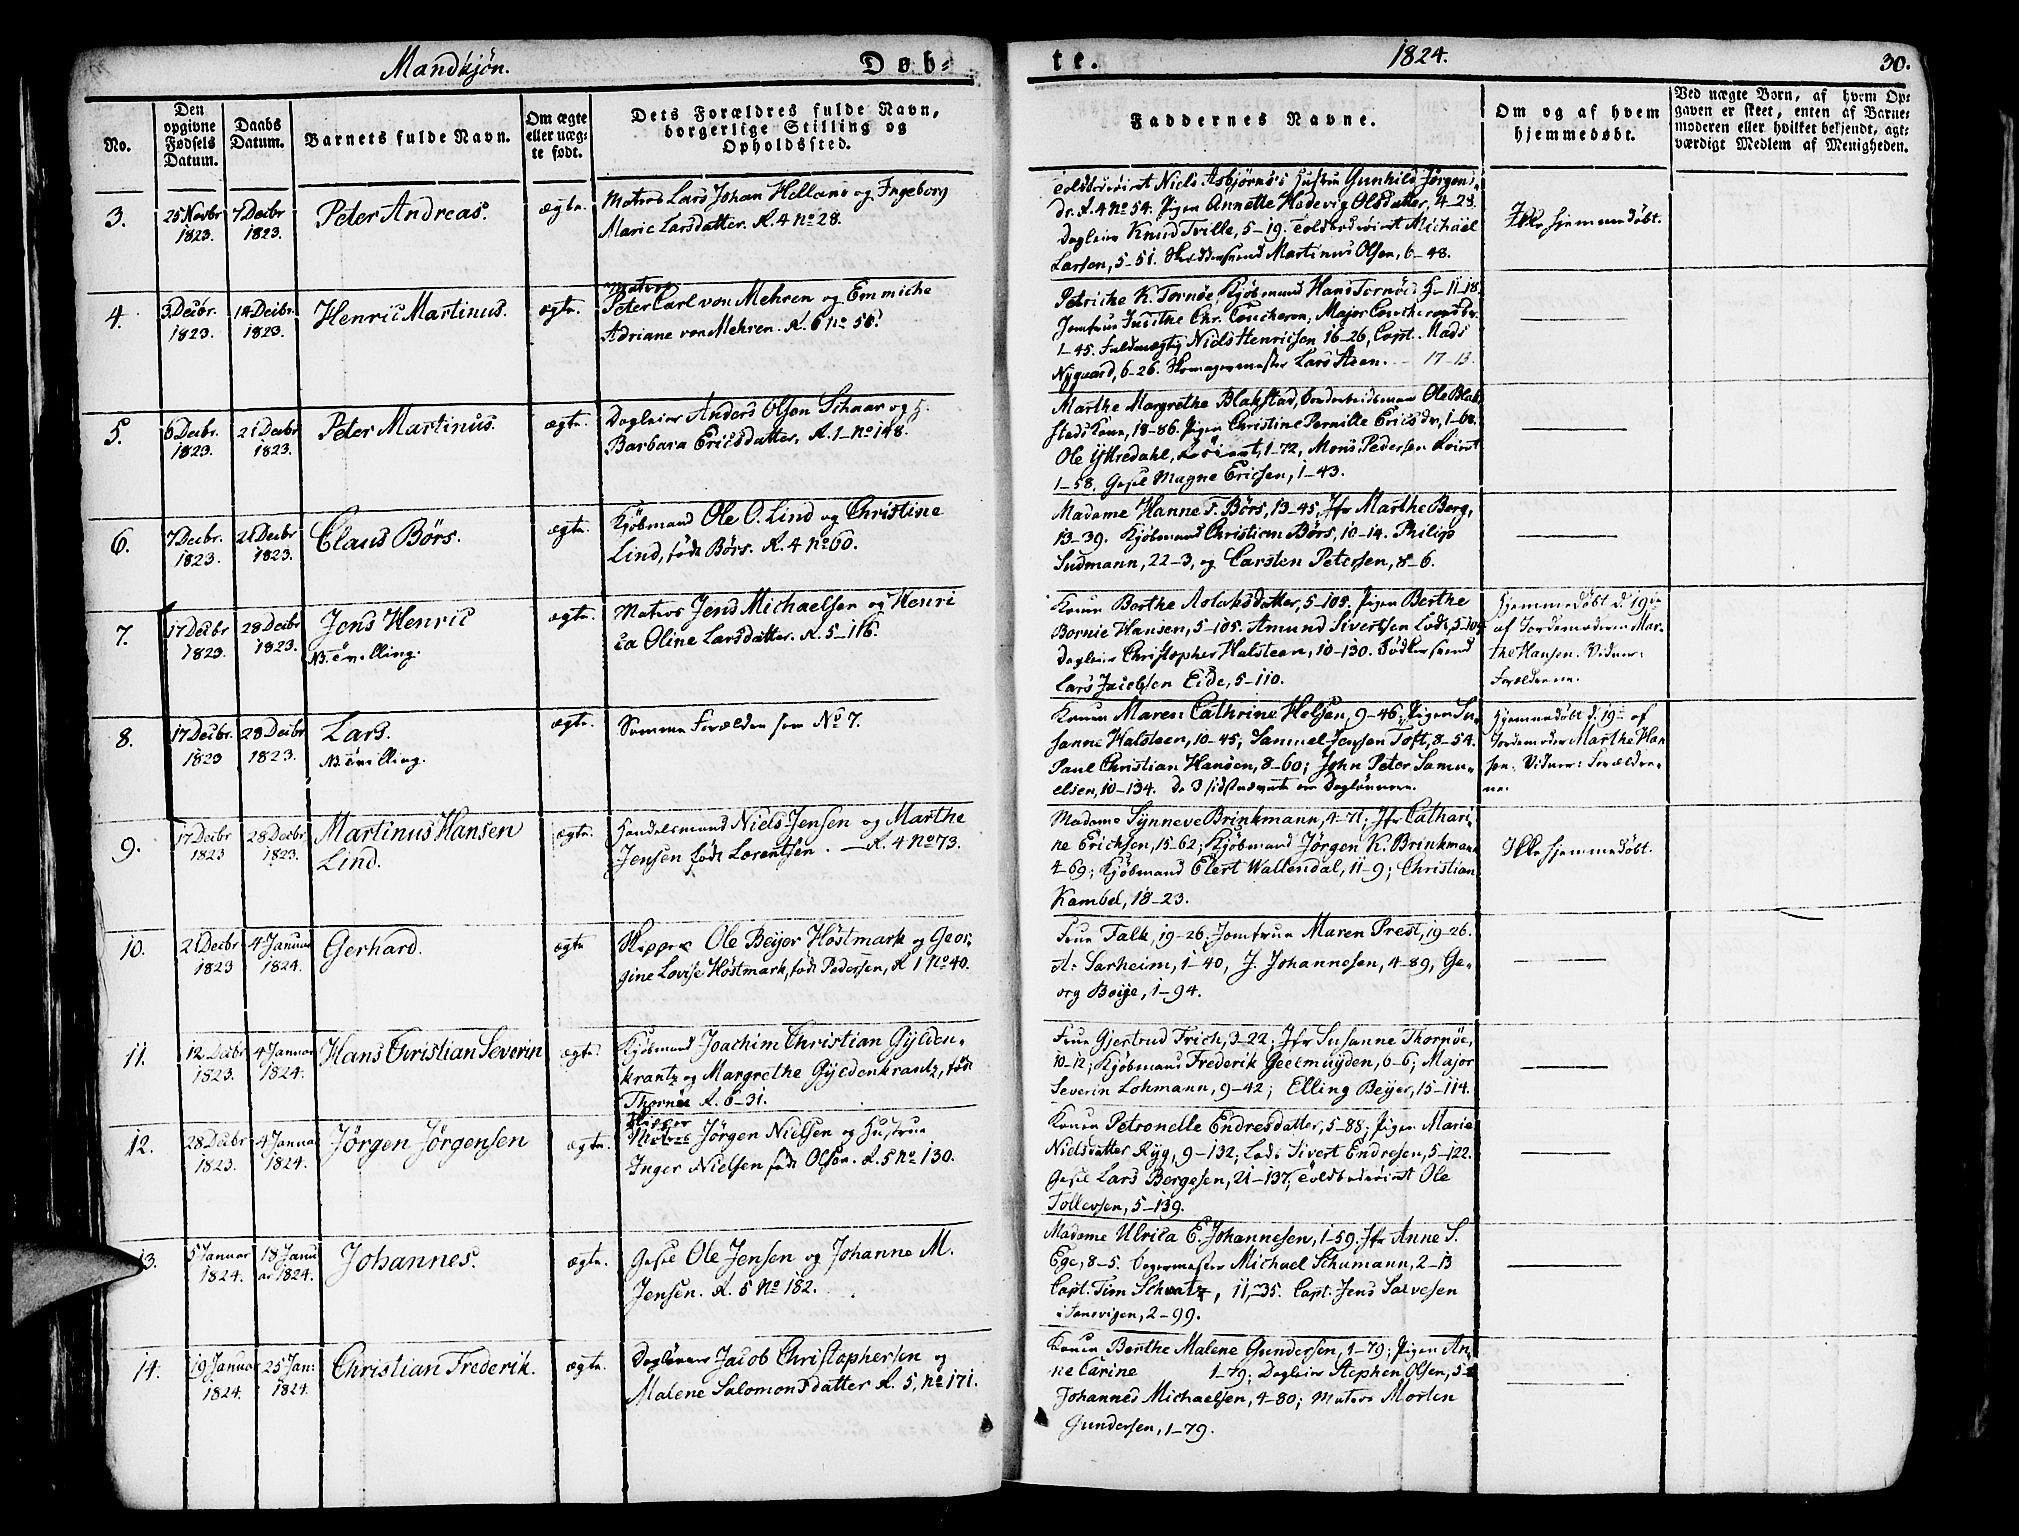 Mandkjøn.
Døb-
te.
1824.
30.
No.
Den opgivne Fødsels Datum.
Daabs Datum.
Barnets fulde Navn.
Om ægte eller uæg-te født.
Dets Forældres fulde Navn, borgerlige Stilling og Opholdssted.
Faddernes Navne.
Om og af hvem hjemmedøbt.
Ved uægte Børn, af hvem Op-gaven er skeet, enten af Barne-moderen eller hvilket bekjendt, agt-værdigt Medlem af Menigheden.
3.
25 Novbr 1823.
7 Decbr 1823.
Peter Andreas.
ægte.
Matros Lars Johan Helland og Ingeborg
Marie Larsdatter. R. 4 No 28.
Niels Asbjørns's Hustru Gunhild Jørgens-
dr. R. 4 No 54. Pigen Annette Hedevig Olsdatter, 4-28.
Dagleier Knud Tville, 5-19. Michäel
Larsen, 5-51. Martinus Olsen, 6-48.
Ikke hjemmedøbt.
4.
3 Decbr. 1823.
14 Decbr. 1823.
Henric Martinus.
ægte.
Matros
Peter Carl von Mehren og Emmiche
Adriane von Mehren. R. 6 No 56.
Petriche K. Tornöe, Kjøbmand Hans Tornöes H. 11-18
Jomfrue Judithe Chr. Coucheron, Major
1-45. Fuldmægtig Niels Henricsen 16-26, Capt. Mads
Nygaard, 6-26. Skomagermester Lars Steen. - 17-13.
5.
6 Decbr. 1823.
21 Decbr 1823.
Peter Martinus.
ægte.
Dagleier Anders Olsen Schaar og H.
Barbara Ericsdatter. R. 1-No 148.
Marthe Margrethe Blakstad, Ole Blak
stads Kone, 18-86. Pigen Christine Pernille Ericsdr, 1-68.
Ole Yttredahl, 1-72, Mons Pedersen
1-58. Gesel Magne Ericsen, 1-43.
6.
7 Decbr. 1823.
21 Decbr 1823.
Claus Börs.
ægte.
Kjöbmand Ole O. Lind og Christine
Lind, födt Börs. R. 4 No 60.
Madame Hanne F. Börs, 13-45, Jfr Marthe Berg,
13-39. Kjöbmand Christian Börs, 10-14. Philip
Sudmann, 22-3, og Carsten Petersen, 8-6.
7.
17 Decbr 1823.
28 Decbr 1823.
Jens Henric
NB. Tvilling.
ægte.
Matros Jens Michaelsen og Henri
ca Oline Larsdatter. R. 5-116.
Konen Berthe Aslaksdatter, 5-105. Pigen Berthe
Bornie Hansen, 5-105. Amund Sivertsen Lods, 5-104
Dagleier Christopher Halsteen, 10-130.
Lars Jacobsen Eide, 5-110.
Hjemmedøbt d. 19de
af Jordemoderen Mar-
the Hansen. Vidner:
Forældrene.
8.
17 Decbr. 1823
28 Decbr 1823.
Lars.
NB. Tvilling.
ægte.
Samme Forældre som No 7.
Konen Maren Cathrine Holsen, 9-46, Pigen Su-
sanne Halsteen, 10-45, Samuel Jensen Toft, 8-54.
Paul Christian Hansen, 8-60; John Peter Samu-
elsen, 10-134. De 3 sidstnævnte ere Daglønnere.
Hjemmedøbt d. 19de af
Jordemoder Marthe Han
sen. Vidner: Forældre-
ne.
9.
17 Decbr 1823
28 Decbr 1823.
Martinus Hansen
Lind.
ægte.
Handelsmand Niels Jensen og Marthe
Jensen födt Lorentsen. - R. 4 No 73.
Madame Synneve Brinkmann, 4-71, Jfr Cathari-
ne Erichsen, 15-62; Kjöbmand Jörgen K. Brinkmann
4-69; Kjöbmand Elert Wallendal, 11-9; Christian
Kambel, 18-23.
Ikke hjemmedøbt.
10.
21 Decbr 1823
4 Januar 1824.
Gerhard.
ægte
Skipper Ole Beyer Höstmark og Geor-
gine Lovise Höstmark, födt Pedersen, R 1 No 40.
Frue Falk, 19-26, Jomfrue Maren Prest, 19-26.
A: Sarheim, 1-40, J. Johannesen, 4-89, Ge-
org Boije, 1-94.
11.
12 Decbr 1823.
4 Januar 1824.
Hans Christian Severin
ægte.
Kjøbmand Joachim Christian Gylden-
krantz og Margrethe Gyldenkrantz, födt
Thornöe R. 6-31.
Frue Gjertrud Frich, 3-22; Jfr Susanne Thornöe,
10-12; Kjöbmand Frederik Geelmuyden, 6-6; Major
Severin Lohmann, 9-42; Elling Beyer, 15-114.
12.
28 Decbr 1823.
4 Januar 1824.
Jörgen Jörgensen
ægte.
Skipper
Matros Jörgen Nielsen og Hustrue
Inger Nielsen födt Olsen. R. 5 No 130.
Konen Petronelle Endresdatter, 5-88; Pigen Marie
Nielsdatter Ryg, 9-132; Lods Sivert Endresen, 5-122.
Gesel Lars Bergesen, 21-137, Ole
Tollevsen, 5-139.
13.
5 Januar 1824.
18 Janu ar 1824.
Johannes.
ægte.
Gesel Ole Jensen og Johanne M.
Jensen. R. 5 No 182.
Madame Ulrica E. Johannesen, 1-59. Jfr Anne S.
Ege, 8-5. Bagermester Michael Schumann, 2-13
Capt. Tim Schwatz, 11-35. Capt. Jens Salvesen
i Sanvigen, 2-99.
14.
19 Januar 1824.
25 Jan: 1824.
Christian Frederik.
ægte.
Daglønner Jacob Christophersen og
Malene Salomonsdatter R. 5, No 171.
Konen Berthe Malene Gundersen, 1-79; Pigen An-
ne Carine 1-79; Dagleier Stephen Olsen, 5-
Johannes Michaelsen, 4-80; Matros Morten
Gundersen, 1-79.